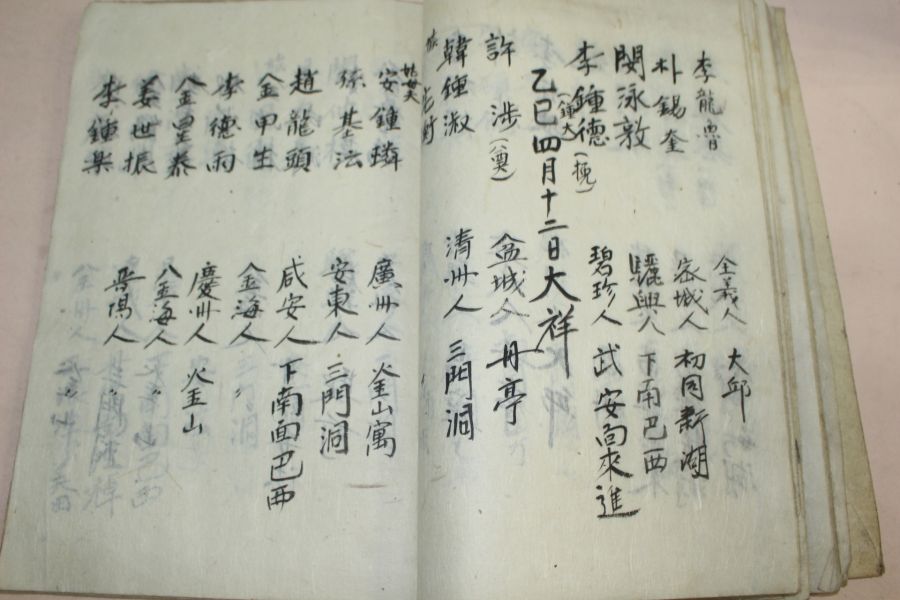 李龍魯 全義人 大邱
朴錫奎 密城人 初同新湖
閔泳敦 驪興人 下南巴西
李鍾德(鍾大)(挽) 碧珍人 武安面來進
乙巳四月十二日大祥
許涉(奠) 盆城人 丹亭
韓鍾淑 清州人 三門洞
姑女夫 安鍾璘 廣州人 釜山寓
孫基法 安東人 三門洞
趙龍頭 咸安人 下南面巴西
金甲生 金海人 〃
李德雨 慶州人 釜山
金星泰 金海人 〃
姜世振 晋陽人 〃
李鍾樂